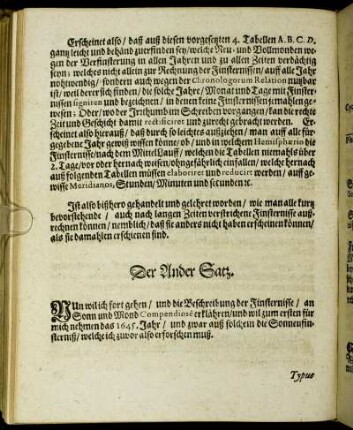 Erscheinet also / daß auß diesen vorgesetzten 4. Tabellen A. B. C. D.
gantz leicht und behänd zuerfinden sey / welche Neu- und Vollmonden we-
gen der Verfinsterung in allen Jahren und zu allen Zeiten verdächtig
seyn: welches nicht allein zur Rechnung der Finsternissen / auff alle Jahr
nohtwendig / sondern auch wegen der Chronologorum Relation nutzbar
ist / weil derer sich finden / die solche Jahre / Monat und Tage mit Finster-
nussen signiren und bezeichnen / in denen keine Finsternissen jemahlen gewe-
sen: Oder / wo der Irithumb im Schreiben vorgangen / kan die rechte
Zeit und Geschicht damit rectificiret und zurecht gebracht werden. Er-
scheinet also hierauß / daß durch so leichtes außziehen / man auff alle für-
gegebene Jahr gewiß wissen könne / ob / und in welchem Hemisphærio die
Finsternisse / nach dem Mittel Lauff / welchen die Tabellen niemahls über
2. Tage / vor oder hernach weisen / ohngefährlich einfallen / welche hernach
auß folgenden Tabellen müssen elaboriret und reduciret werden / auff ge-
wisse Meridianos, Stunden / Minuten und secunden etc.
Ist also bißhero gehandelt und gelehret worden / wie man alle kurtz
bevorstehende / auch nach langen Zeiten verstrichene Finsternisse auß-
rechnen können / nemblich / daß sie anders nicht haben erscheinen können /
als sie damahlen erschienen sind.
Der Ander Satz.
NUn wil ich fort gehen / und die Beschreibung der Finsternisse / an
Sonn und Mond Compendiosé erklähren / und wil zum ersten für
mich nehmen das 1645. Jahr / und zwar auß solchem die Sonnenfin-
sterniß / welche ich zuvor also erforschen muß.
Typus